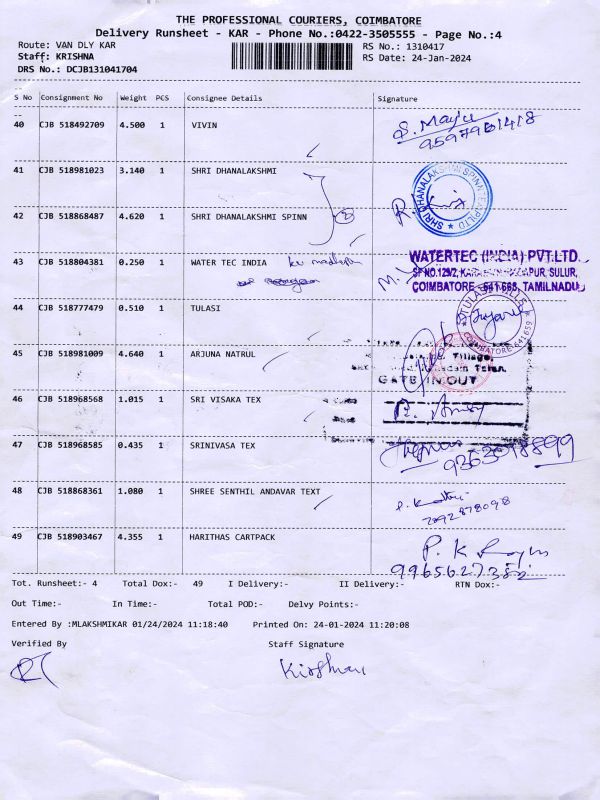 THE PROFESSIONAL COURIERS, COIMBATORE
Delivery Runsheet - KAR - Phone No.:0422-3505555 - Page No.:4
Route: VAN DLY KAR RS No.: 1310417
Staff: KRISHNA RS Date: 24-Jan-2024
DRS No.: DCJB131041704
S No Consignment No Weight PCS Consignee Details Signature
40 CJB 518492709 4.500 1 VIVIN
9597961418
41 CJB 518981023 3.140 1 SHRI DHANALAKSHMI
42 CJB 518868487 4.620 1 SHRI DHANALAKSHMI SPINN
43 CJB 518804381 0.250 1 WATER TEC INDIA
WATERTEC (INDIA) PVT.LTD.
COIMBATORE - 641 668, TAMILNADU
44 CJB 518777479 0.510 1 TULASI
45 CJB 518981009 4.640 1 ARJUNA NATRUL
Village,
GATE IN/OUT
46 CJB 518968568 1.015 1 SRI VISAKA TEX
47 CJB 518968585 0.435 1 SRINIVASA TEX
48 CJB 518868361 1.080 1 SHREE SENTHIL ANDAVAR TEXT
49 CJB 518903467 4.355 1 HARITHAS CARTPACK
9965627382
Tot. Runsheet:- 4 Total Dox:- 49 I Delivery:- II Delivery:- RTN Dox:-
Out Time:- In Time:- Total POD:- Delvy Points:-
Entered By :MLAKSHMIKAR 01/24/2024 11:18:40 Printed On: 24-01-2024 11:20:08
Verified By Staff Signature